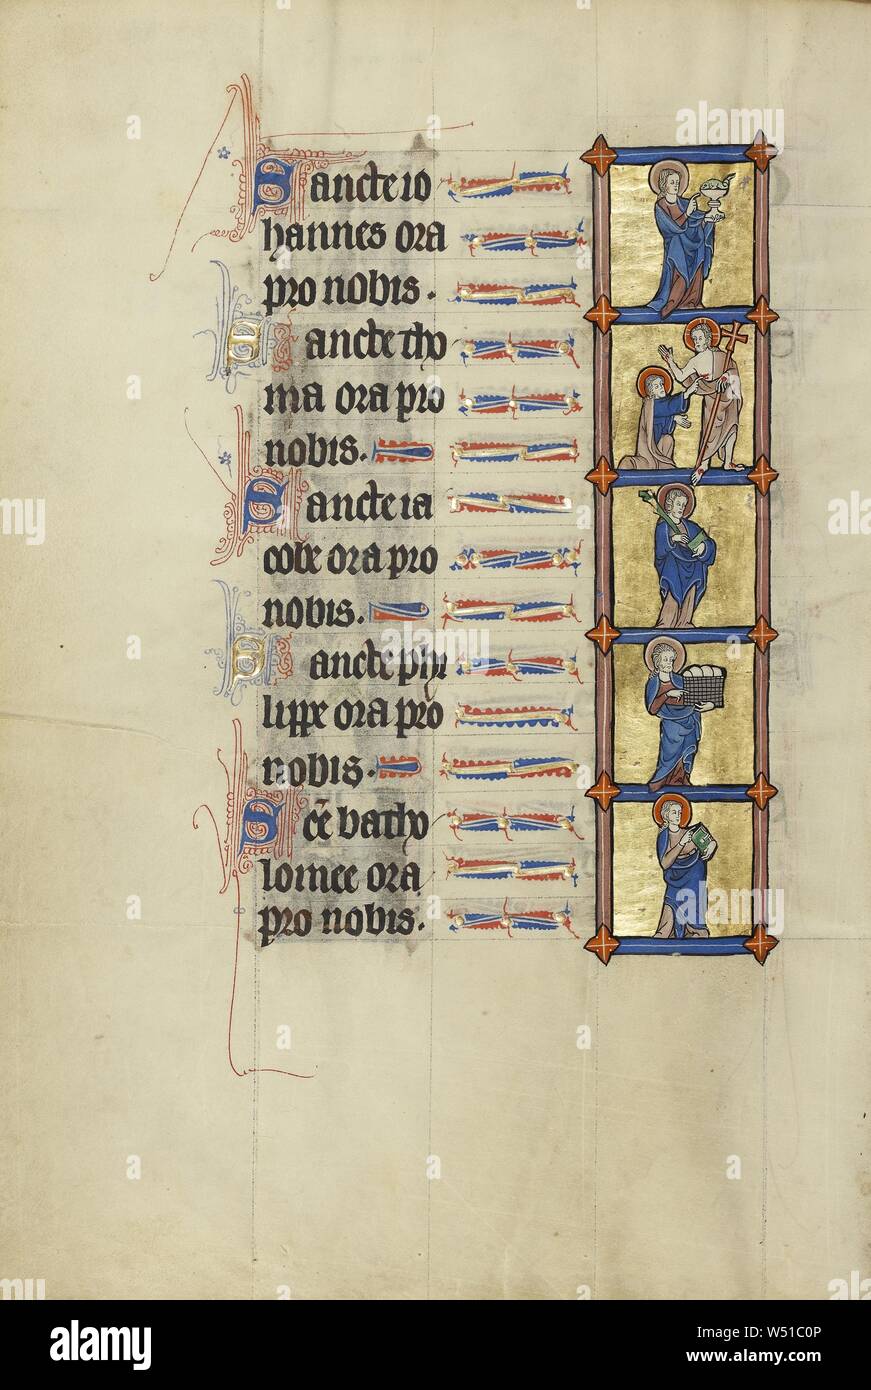 Sancte io
hannes ora
pro nobis.
Sancte tho
ma ora pro
nobis.
Sancte ia
cobe ora pro
nobis.
Sancte phi
lippe ora pro
nobis.
Sc̄e batho
lomee ora
pro nobis.
alamy
Image ID: W51C0P
www.alamy.com